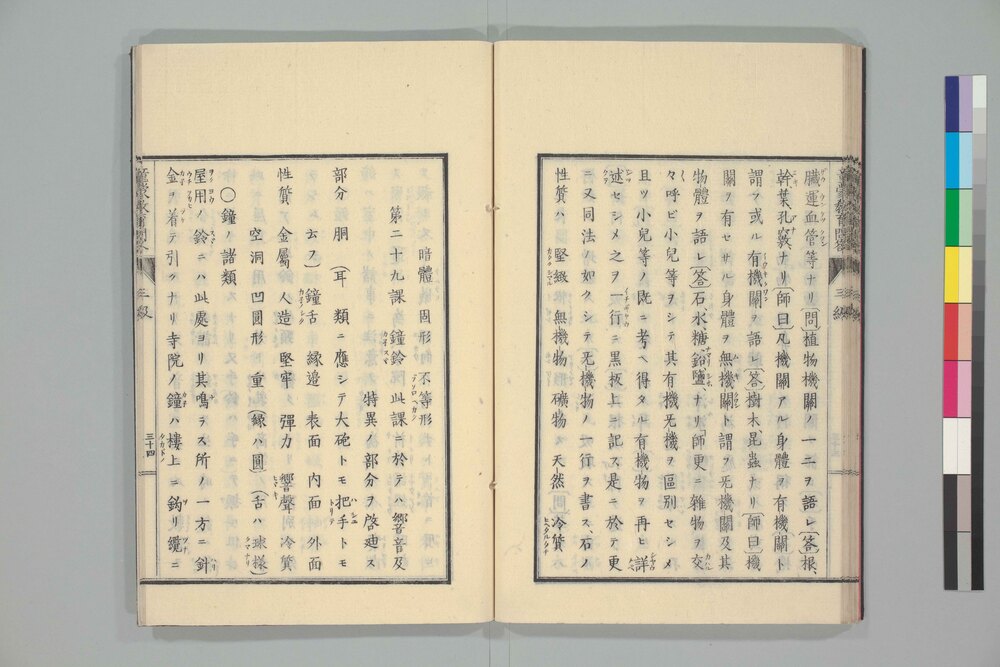 臟運血管等ナリ〔問〕植物機關ノ一二ヲ語レ〔答〕根、
幹葉孔竅ナリ〔師曰〕凡機關アル身體ヲ有機關ト
謂フ或ル有機關ヲ語レ〔答〕樹木、昆蟲ナリ〔師曰〕機
關ヲ有セサル身體ヲ無機關ト謂フ旡機關及其
物體ヲ語レ〔答〕石水、糖、鉛鹽、ナリ「師更ニ雜物ヲ交
々呼ビ小兒等ヲシテ其有機旡機ヲ區別セシメ
且ツ小兒等ノ既ニ考ヘ得タル有機物ヲ再ヒ詳
述セシメ之ヲ一行ニ黒板上ニ記ス是ニ於テ更
ニ又同法ノ如クシテ旡機物ノ一行ヲ書ス石ノ
性質ハ 堅緻 無機物 礦物 天然 冷質
暗體 固形 不等形
第二十九課 鐘鈴 此課ニ於テハ響音及
特異ノ部分ヲ啓廸ス
部分 胴 (耳 類ニ應シテ大砲トモ把手トモ
云フ) 鐘舌 縁邉 表面 内面 外面
性質 ア金屬 人造 堅牢 彈力 響聲 冷質
空洞 用 凹圓形 重(縁ハ圓)(舌ハ球様)
〇鐘ノ諸類
屋用ノ鈴ニハ此處ヨリ其鳴ラス所ノ一方ニ針
金ヲ着テ引クナリ寺院ノ鐘ハ樓上ニ鈎リ纜ニ
三級
三十四